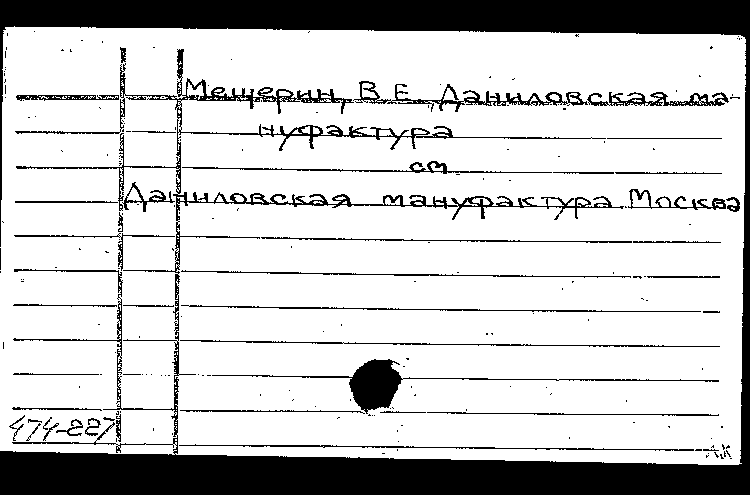 Мещерин, В. Е., Даниловская ма-
нуфактура
см
Даниловская мануфактура. Москва
474-227
А.К